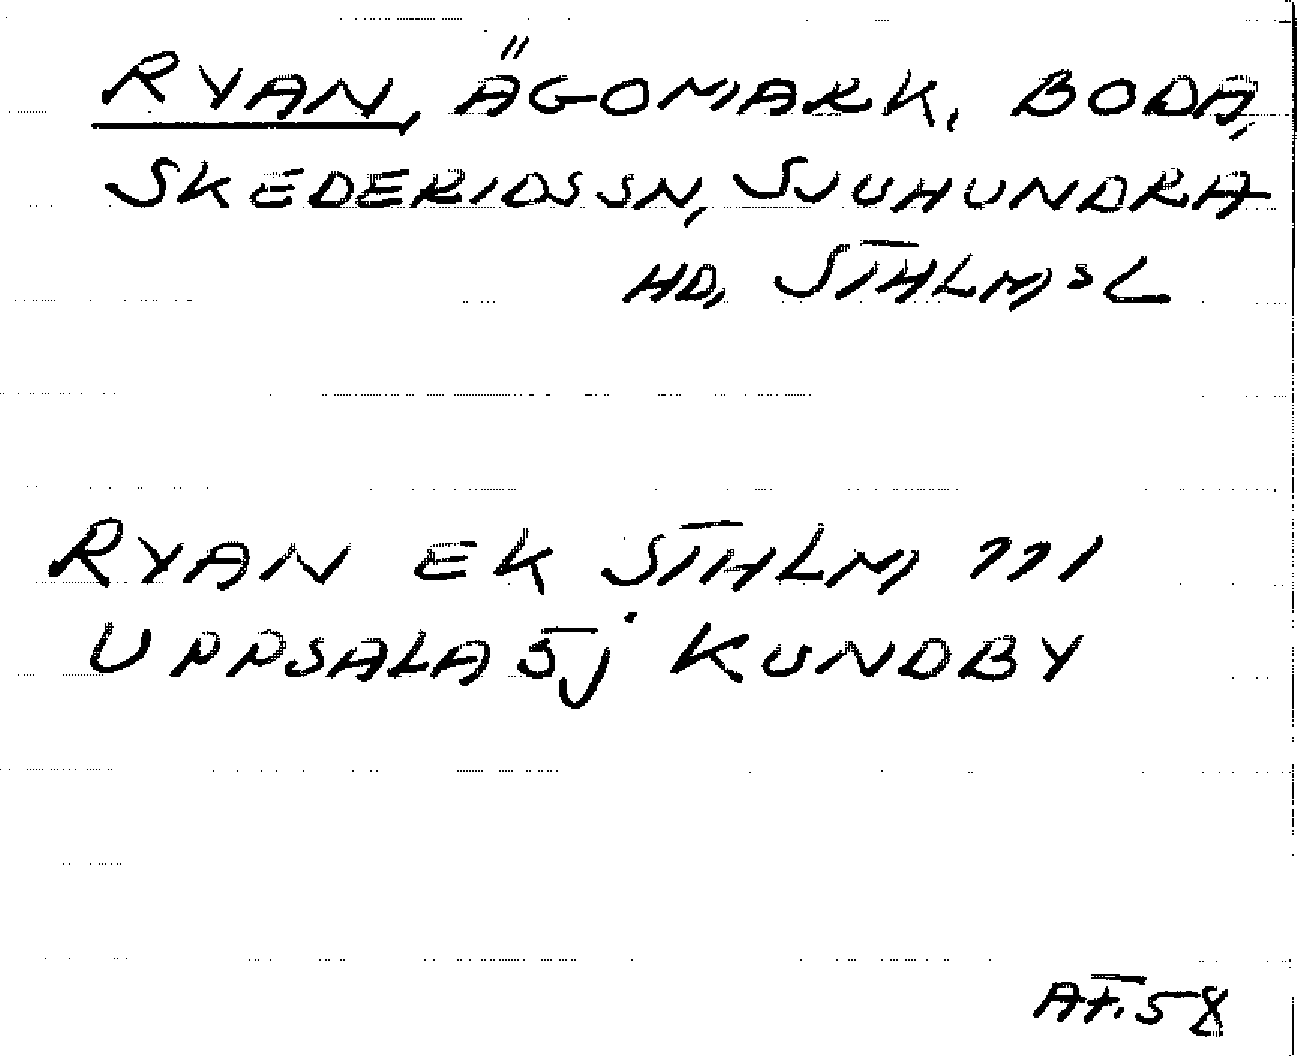 RYAN, ÄGOMARK, BODA,
SKEDERIDS SN, SJUHUNDRA
HD, STHLMS L
RYAN EK STHLM 771
UPPSALA 5j KUNDBY
AT. 58